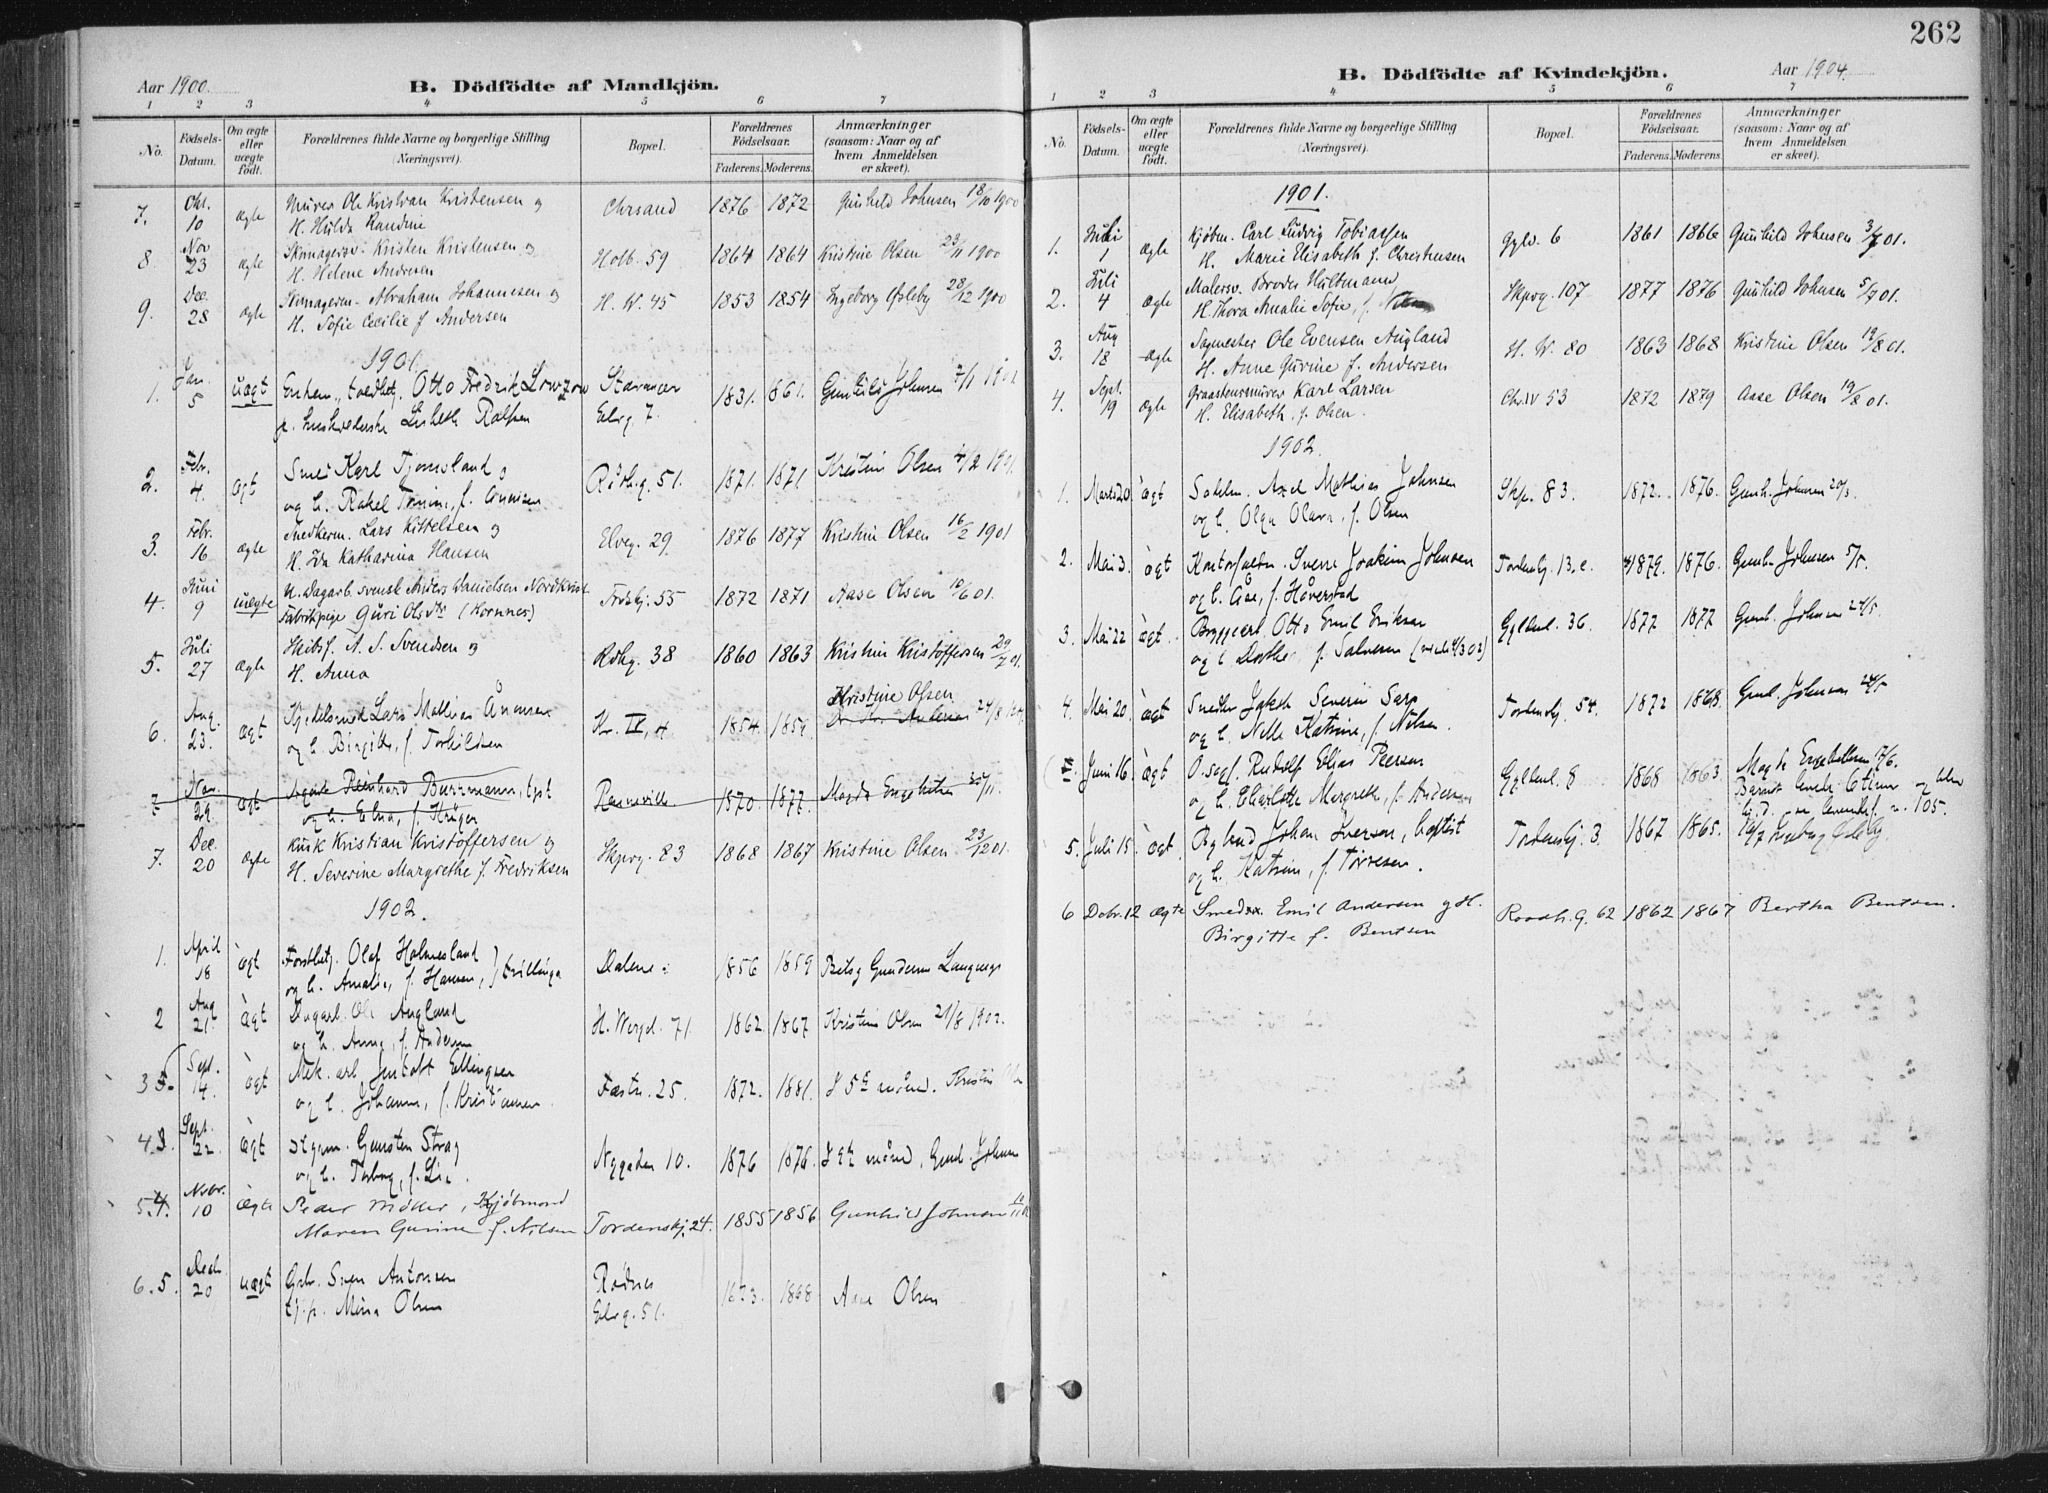 262
Aar 1900.
B. Dödfödte af Mandkjön.
1 2 3 4 5 6 7
No.
Födsels-Datum.
Om ægte eller uægte födt.
Forældrenes fulde Navne og borgerlige Stilling (Næringsvei).
Bopæl.
Forældrenes Födselsaar.
Faderens. Moderens.
Anmærkninger (saasom: Naar og af hvem Anmeldelsen er skeet).
7. Okt. 10 ægte Murer Ole Kristian Kristensen og Chrsand 1876 1872 Gunhild Johnsen 18/10 1900
H. Hulda Randine
8. Nov 23 ægte Skomagersv. Kristen Kristensen og Holb. 59 1864 1864 Kristine Olsen 23/11 1900
H. Helene Andersen
9. Dec. 28 ægte Skomagerm. Abraham Johannesen og H. W. 45 1853 1854 Ingeborg Øfsleby 28/12 1900
H. Sofie Cecilie f. Andersen
1901
1. Jan. 5 uægt Enkem., toldbetj. Otto Fredrik Lowzow Stavanger 1831. 861. Gunhild Johnsen 7/1 1901
Lisbeth Elvg. 7.
2. Febr. 4. ægt Smed Karl Tjomsland og Rådh.g. 51. 1871. 1871 Kristine Olsen 4/2 1901.
og h. Rakel f.
3. Febr. 16 ægte Snedkerm. Lars Kittelsen og Elveg. 29 1876 1877 Kristine Olsen 16/2 1901
H. Ida Katharina Hansen
4. Juni 9 uægte U. Dagarb. svensk Anders Danielsen Nordkvist Fredskj. 55 1872 1871 Aase Olsen 10/6 01.
Fabrikpige Guri Olsdtr (Kornnes)
5. Juli 27 ægte Skibsf. A. S. Svendsen og Rdhg. 38 1860 1863 Kristine Kristoffersen 29/7 01.
H. Anna
6. Aug. 23. ægt Kjedelsmed Lars Mathias Ånonsen Kr. IV, 4 1854. 185 Kristine Olsen 24/8
og h. Birgitte, f. Torkildsen
7 Nov. 29. ægt Reinhard Burzmann, bpst 1870. 1877. Magda Engebretsen 30/11.
og h. Elna, f. Krüger
7. Dec. 20 ægte Kusk Kristian Kristoffersen og Skpvg. 83 1868 1867 Kristine Olsen 23/12 01.
H. Severine Margrethe f. Fredriksen
1902.
1. April 18 ægt Forstbetj. Olaf Holmesland Dalene 1856 1859 Betsy Gundersen
og h. Amalie, f. Hansen, } tvillinge
2 Aug 21 ægt Dagarb. Ole Augland H. Wergel. 71. 1862. 1867 Kristine Olsen 21/8 1902.
og h. Anne, f. Andersen
3 Sept. 14. ægt Mek. arb Gustav Ellingsen Fæstn. 25. 1872. 1881. I 5te måned. Kristine
og h. Johanne, f. Kristiansen
4 3. Sept. 22. ægt Styrm. Gunsten Stray Nygaden 10. 1876 1876. I måned, Gunh. Johnsen
og h. Torborg, f. Lie.
5. 4. Novbr. 10 ægte Peder Møller, Kjøbmand
Maren Gurine f. Nilsen Tordenskj. 24. 1855 1856 Gunhild Johnsen 10/11
6. 5. Decb. 20 uægt Sven Antonsen 1868 Aase Olsen
tj.p. Mina Olsen Elvg. 51.
Aar 1904.
B. Dödfödte af Kvindekjön.
1 2 3 4 5 6 7
No.
Födsels-Datum.
Om ægte eller uægte födt.
Forældrenes fulde Navne og borgerlige Stilling (Næringsvei).
Bopæl.
Forældrenes Födselsaar.
Faderens. Moderens.
Anmærkninger (saasom: Naar og af hvem Anmeldelsen er skeet).
1901.
1. Juli 1 ægte Kjøbm. Carl Ludvig Tobiassen Gyld. 6 1861 1866 Gunhild Johnsen 3/7 01.
H. Marie Elisabeth f. Christensen
2. Juli 4 ægte Malersv. Broder Hultmann Skpvg. 107 1877 1876 Gunhild Johnsen 5/7 01.
H. Thora Amalie Sofie, f.
3. Aug 18 ægte Sagmester Ole Evensen Augland H. W. 80 1863 1868 Kristine Olsen 19/8 01.
H. Anne Gurine f. Andersen
4. Sept. 19 ægte Graastensmurer Karl Larsen Chr. IV 53 1872 1879 Aase Olsen 19/8 01.
H. Elisabeth f. Olsen.
1902.
1. Marts 20 ægt Axel Mathias Johnsen Skp. 83. 1872. 1876. Gunh. Johnsen 20/3.
og h. Olga Olava, f. Olsen
2. Mai 3. ægt Sverre Joakim Johnsen Tordenskj. 13. c. 1879. 1876. Gunh. Johnsen 5/5.
og h. Åse, f. Håverstad
3. Mai 22 ægt. Bryggeriarb. Otto Emil Eriksen Gyldenl. 36. 1877 1877 Gunh. Johnsen 24/5
og h. Dorthea f. Salvesen
4. Mai 20. ægt Snedker Jakob Severin Sarp Tordenskj. 54. 1872 1868. Gunh. Johnsen 24/5
og h. Nelle Katrine, f. Nilsen.
Juni 16 ægt O.sagf. Rudolf Elias Peersen Gyldenl. 8 1868 1863. Magda Engebretsen 17/6.
og h. Charlotte Margrethe, f. Andersen Barnet levede 6 timer
5. Juli 15. ægt. Johan Iversen, baptist Tordenskj. 3. 1867 1865. 16/7 Ingeborg
og h. Katrine, f. Torresen.
6 Debr. 12 ægte Smed Emil Andersen og H. Raadh. g. 62 1862 1867 Bertha Bentsen.
Birgitte f. Bentsen